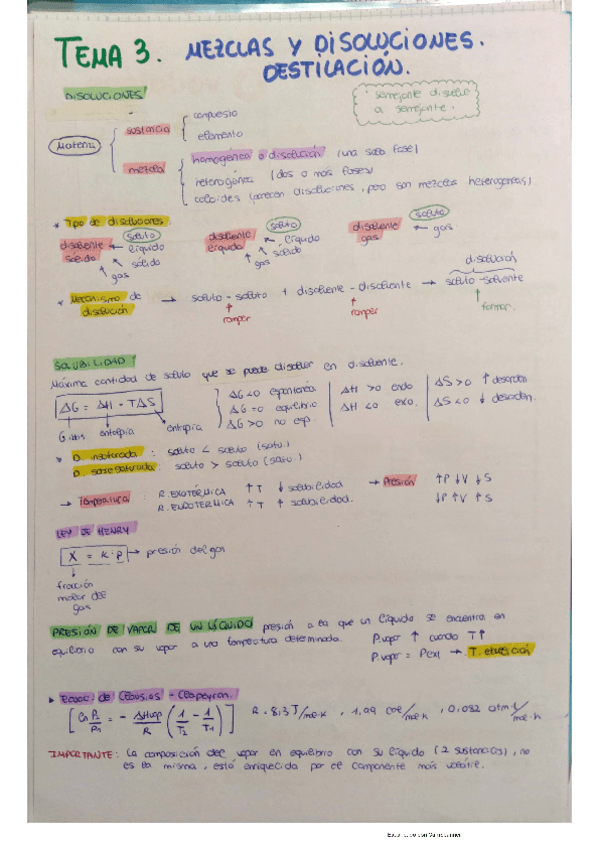 TEMA 3. MEZCLAS Y DISOLUCIONES.
DESTILACIÓN.
DISOLUCIONES
"semejante disuelve
a semejante".
Materia
sustancia
compuesto
elemento
mezcla
homogénea o disolución (una sola fase)
heterogénea (dos o más fases)
coloides (parecen disoluciones, pero son mezclas heterogéneas)
* Tipo de disoluciones
disolvente sólido ← soluto líquido
sólido
gas
disolvente líquido ← soluto líquido
sólido
gas
disolvente gas ← soluto gas
disolución
* Mecanismo de disolución → soluto-soluto + disolvente-disolvente → soluto-solvente
romper romper formar
SOLUBILIDAD
Máxima cantidad de soluto que se puede disolver en disolvente.
ΔG = ΔH - TΔS
Gibbs entalpía entropía
ΔG<0 espontánea
ΔG=0 equilibrio
ΔG>0 no esp.
ΔH >0 endo
ΔH <0 exo.
ΔS>0 ↑ desorden
ΔS<0 ↓ desorden.
* D. insaturada : soluto < soluto (satu.)
D. sobresaturada: soluto > soluto (satu.)
→ Temperatura : R. EXOTÉRMICA ↑T ↓ solubilidad
R. ENDOTÉRMICA ↑T ↑ solubilidad.
→ Presión ↑P ↓V ↓S
↓P ↑V ↑S
LEY DE HENRY
X = k·p → presión del gas
fracción
molar del
gas
PRESIÓN DE VAPOR DE UN LÍQUIDO presión a la que un líquido se encuentra en
equilibrio con su vapor a una temperatura determinada.
P.vapor ↑ cuando T↑
P.vapor = Pext → T. ebullición
Ecuac. de Clausius-Clapeyron.
[Ln P2/P1 = - ΔHvap/R (1/T2 - 1/T1)] R = 8,3 J/mol·K , 1,99 cal/mol·K , 0,082 atm·l/mol·K
IMPORTANTE: La composición del vapor en equilibrio con su líquido (2 sustancias), no
es la misma, está enriquecida por el componente más volátil.